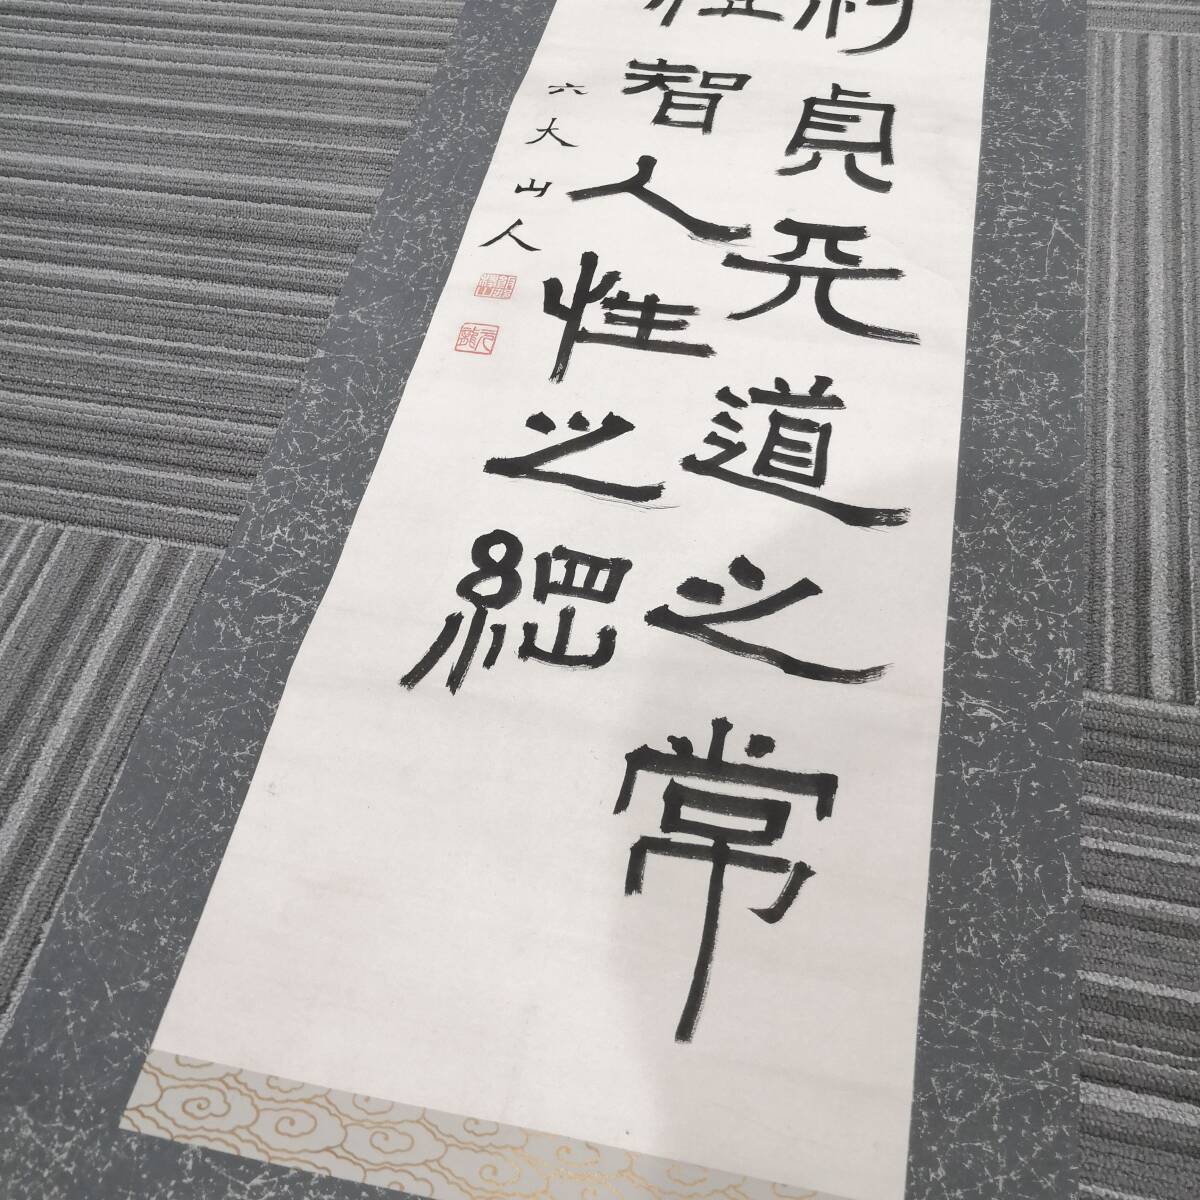 利貞天道之常
禮智人性之綱
六大山人
元龍